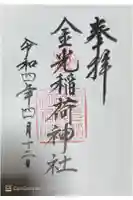 奉拝
金光稲荷神社
令和四年四月十二日
CamScanner